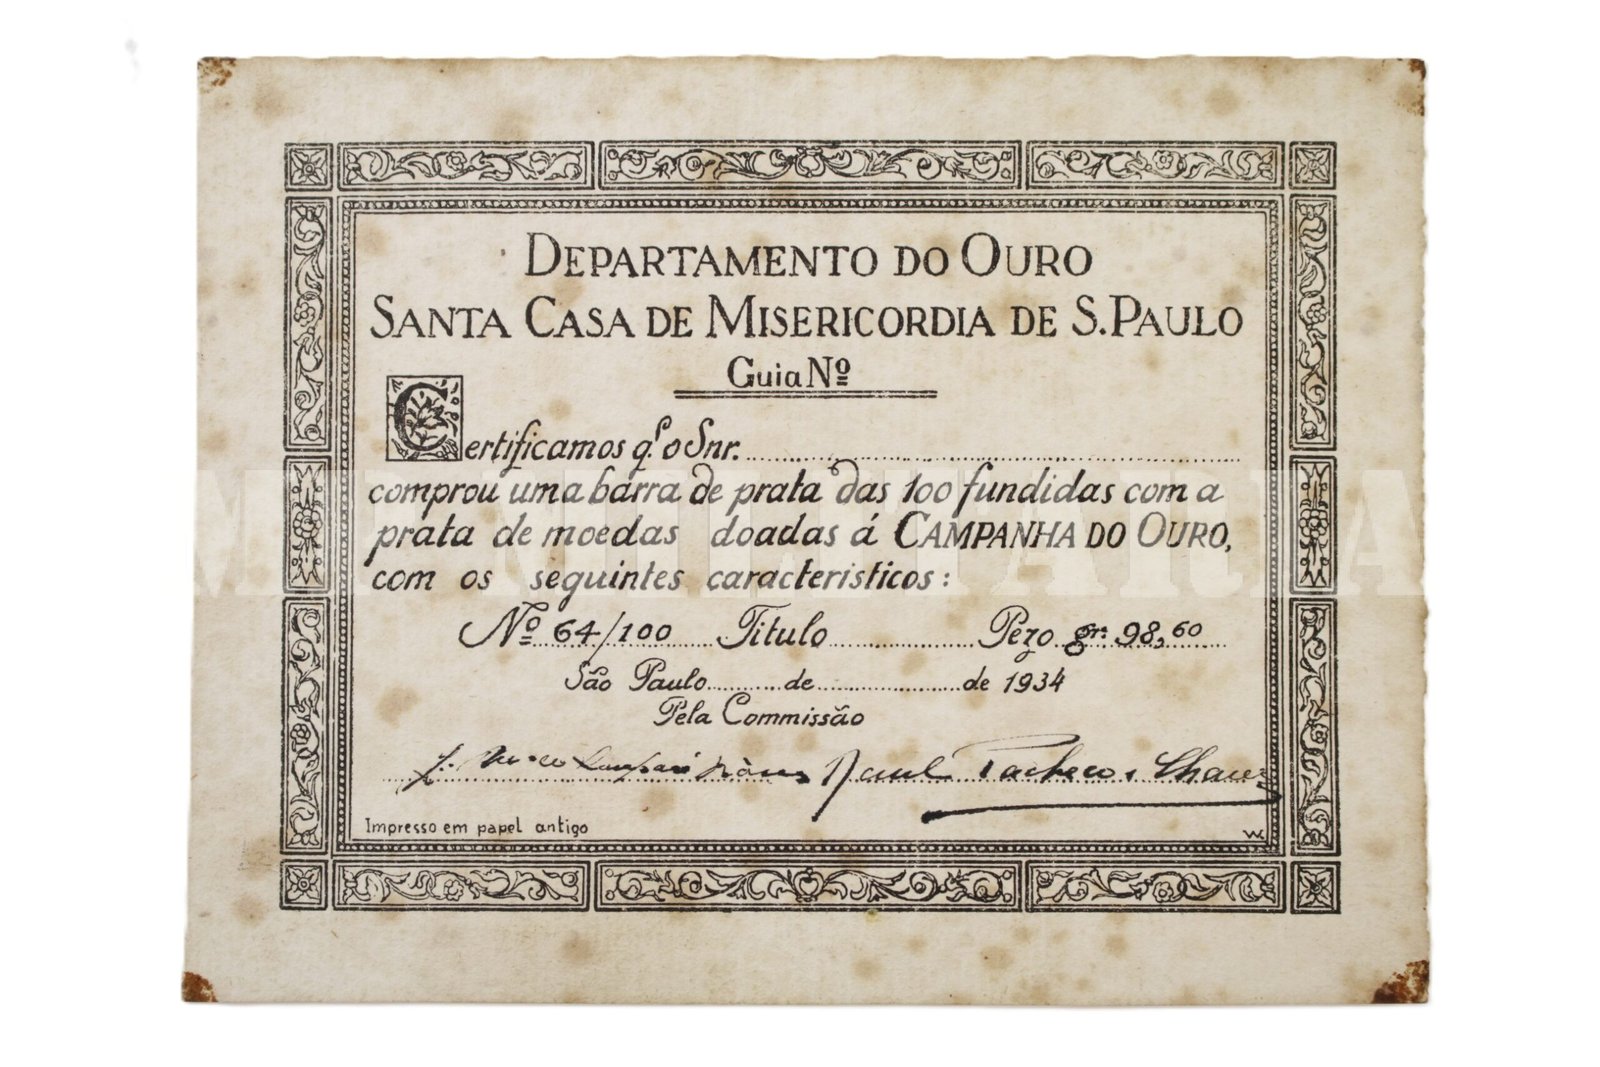 DEPARTAMENTO DO OURO
SANTA CASA DE MISERICORDIA DE S. PAULO
Guia Nº
Certificamos q.^e o Snr.
comprou uma barra de prata das 100 fundidas com a
prata de moedas doadas á CAMPANHA DO OURO,
com os seguintes caracteristicos:
Nº 64/100 Titulo Pezo grs. 98,60
São Paulo de de 1934
Pela Commissão
Raul Pacheco e Chaves
Impresso em papel antigo